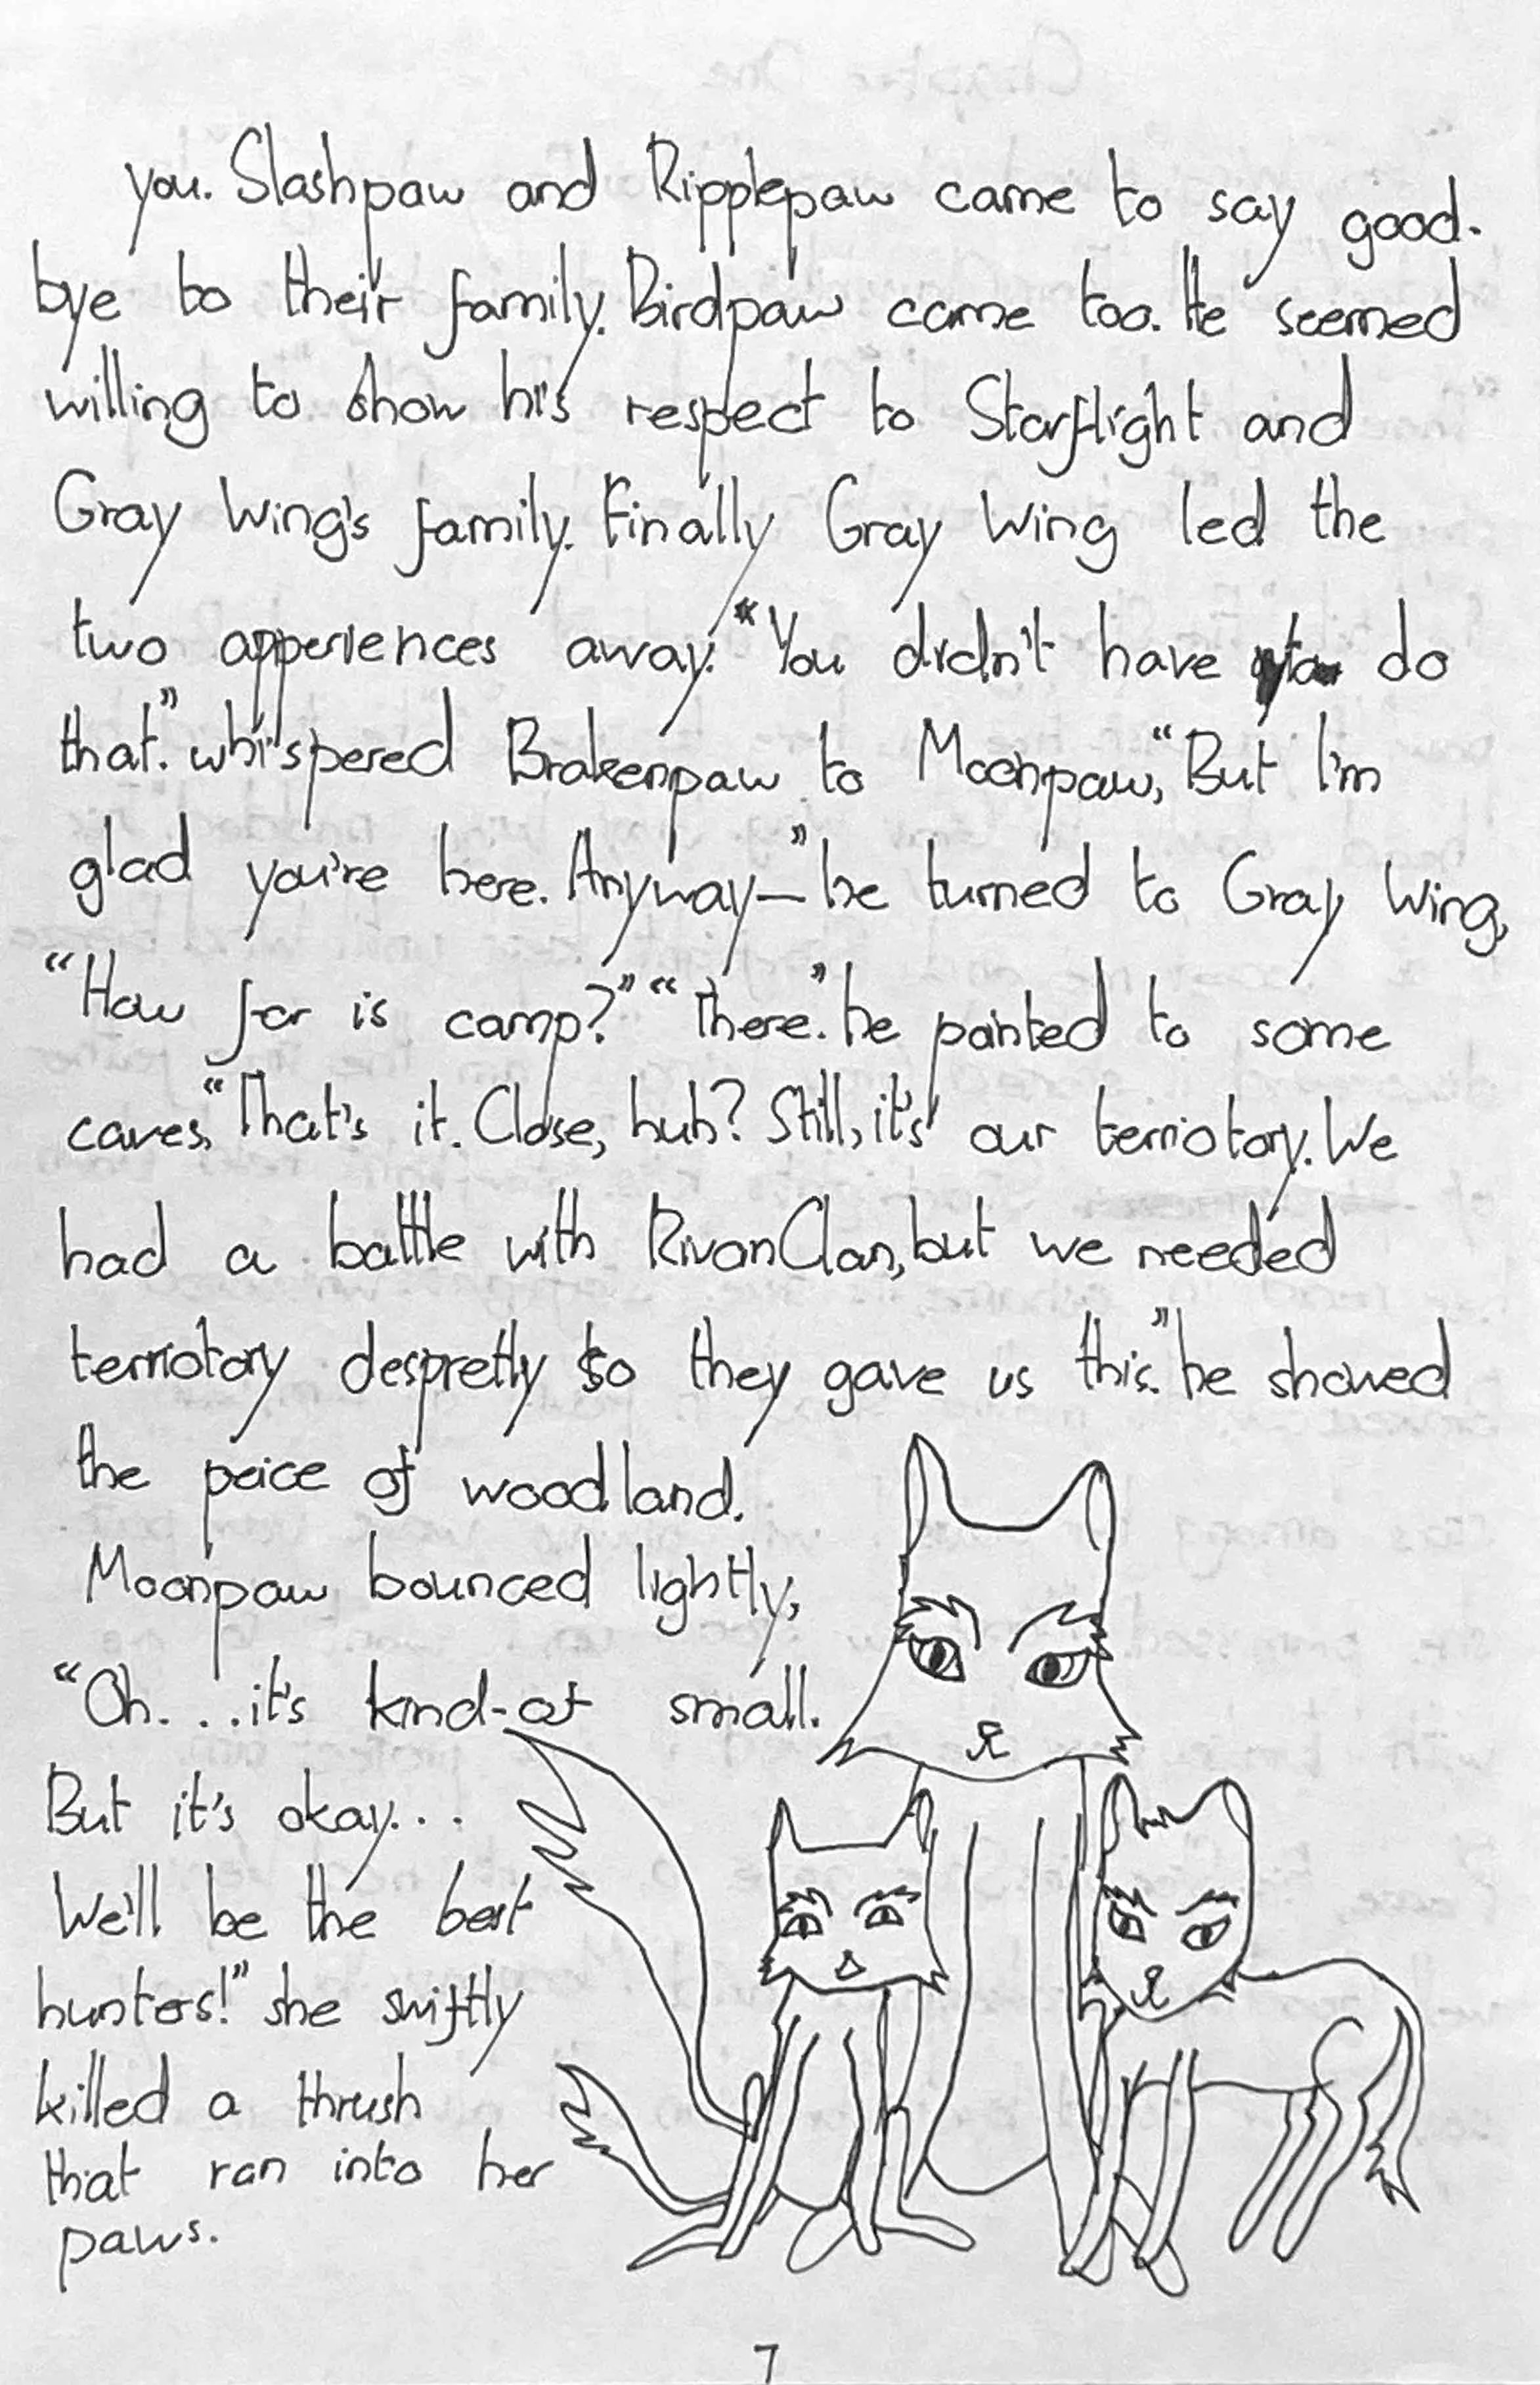 you. Slashpaw and Ripplepaw came to say good-
bye to their family. Birdpaw came too. He seemed
willing to show his respect to Starflight and
Gray Wing's family. Finally Gray Wing led the
two apperiences away. "You didn't have to do
that." whispered Brakenpaw to Moonpaw, "But I'm
glad you're here. Anyway—" he turned to Gray Wing,
"How far is camp?" "There." he pointed to some
caves, "That's it. Close, huh? Still, it's our terriotory. We
had a battle with RivanClan, but we needed
terriotory despretly so they gave us this." he showed
the peice of woodland.
Moonpaw bounced lightly,
"Oh. . . it's kind-of small.
But it's okay. . .
We'll be the best
hunters!" she swiftly
killed a thrush
that ran into her
paws.
7